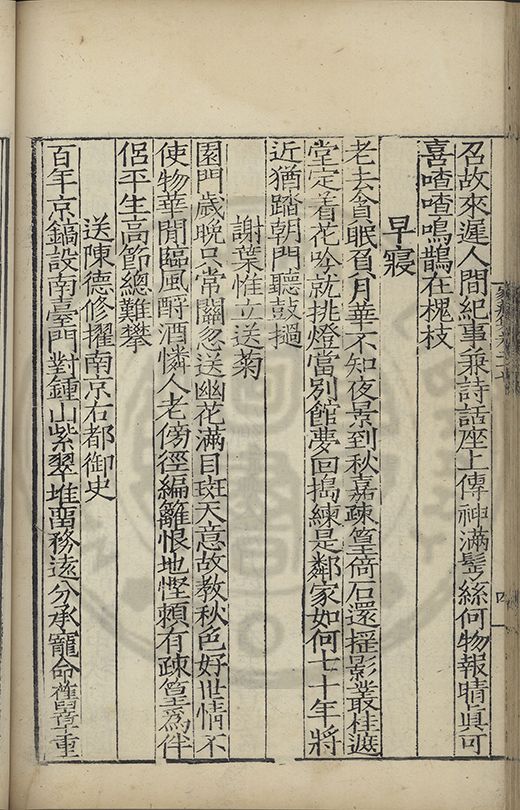 召故來遲人間紀事乘詩話座上傳神滿髩絲何物報晴真可
喜喳喳鳴鵲在槐枝
早寢
老去貪眠負月華不知夜景到秋嘉疎篁倚石還摇影叢桂遮
堂定着花吟就挑燈當别館夢回搗練是鄰家如何七十年將
近猶踏朝門聽鼓撾
謝葉惟立送菊
園門歲晚只常關忽送幽花滿目斑天意故教秋色好世情不
使物華閒臨風酹酒憐人老傍徑編籬恨地慳頼有疎篁爲伴
侣平生高節總難攀
送陳德修擢南京右都御史
百年京鎬設南臺門對鍾山紫翠堆畱務遠分承寵命舊章重